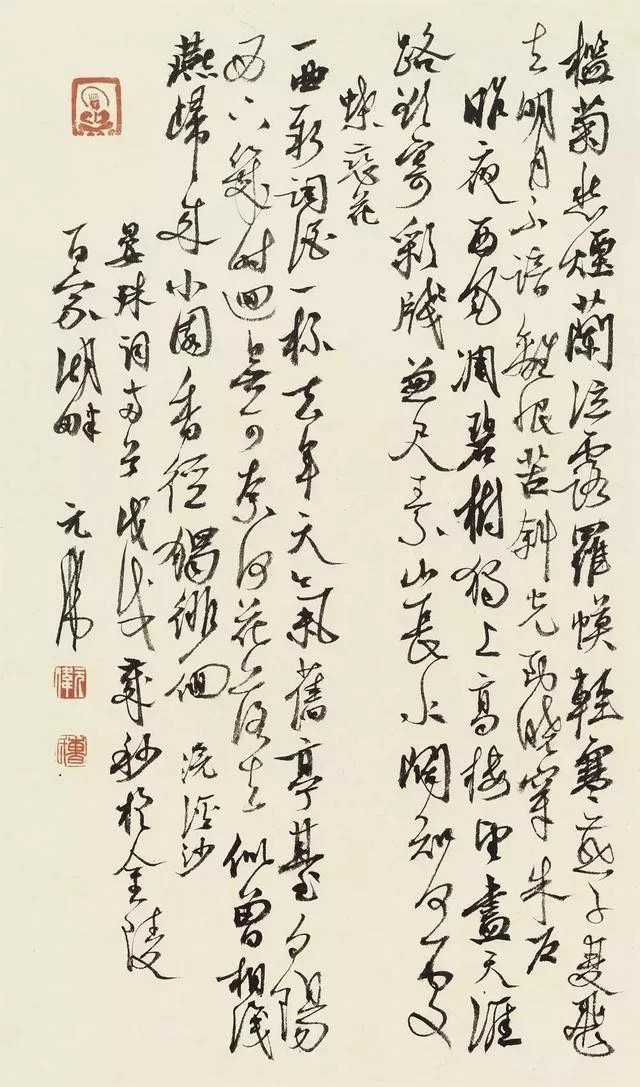 檻菊愁煙蘭泣露羅幙輕寒燕子雙飛
去明月不諳離恨苦斜光到曉穿朱户
昨夜西風凋碧樹独上高樓望盡天涯
路欲寄彩牋兼尺素山長水闊知何處
蝶戀花
一曲新詞酒一杯去年天氣舊亭臺夕陽
西下幾時迴無可奈何花落去似曾相識
燕歸來小園香徑獨徘徊 浣溪沙
晏殊詞兩首戊戌歲秒於金陵
百家湖畔 元